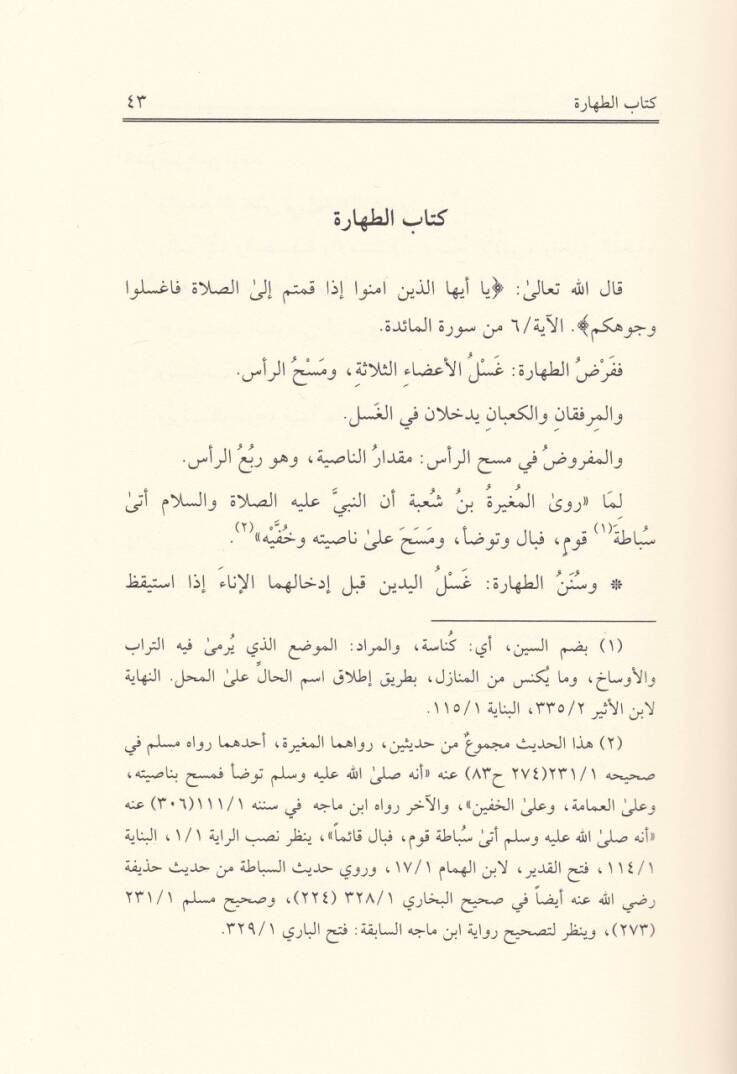 كتاب الطهارة
٤٣
كتاب الطهارة
قال الله تعالىٰ: ﴿يا أيها الذين امنوا إذا قمتم إلىٰ الصلاة فاغسلوا
وجوهكم﴾. الآية/٦ من سورة المائدة.
ففَرْضُ الطهارة: غَسْلُ الأعضاءِ الثلاثةِ، ومَسْحُ الرأس.
والمرفقانِ والكعبانِ يدخلان في الغَسل.
والمفروضُ في مسح الرأس: مقدارُ الناصية، وهو ربُعُ الرأس.
لِمَا «روىٰ المُغيرةُ بنُ شُعبة أن النبيَّ عليه الصلاة والسلام أتىٰ
سُباطةَ(١) قومٍ، فبال وتوضأ، ومَسَحَ علىٰ ناصيته وخُفَّيْه»(٢).
* وسُنَنُ الطهارة: غَسْلُ اليدين قبل إدخالهما الإناءَ إذا استيقظ
(١) بضم السين، أي: كُناسة، والمراد: الموضع الذي يُرمىٰ فيه التراب
والأوساخ، وما يُكنس من المنازل، بطريق إطلاق اسم الحالِّ علىٰ المحل. النهاية
لابن الأثير ٣٣٥/٢، البناية ١١٥/١.
(٢) هذا الحديث مجموعٌ من حديثين، رواهما المغيرة، أحدهما رواه مسلم في
صحيحه ٢٣١/١(٢٧٤ ح٨٣) عنه «أنه صلىٰ الله عليه وسلم توضأ فمسح بناصيته،
وعلىٰ العمامة، وعلىٰ الخفين»، والآخر رواه ابن ماجه في سننه ١١١/١(٣٠٦) عنه
«أنه صلىٰ الله عليه وسلم أتىٰ سُباطة قوم، فبال قائماً»، ينظر نصب الراية ١/١، البناية
١١٤/١، فتح القدير، لابن الهمام ١٧/١، وروي حديث السباطة من حديث حذيفة
رضي الله عنه أيضاً في صحيح البخاري ٣٢٨/١ (٢٢٤)، وصحيح مسلم ٢٣١/١
(٢٧٣)، وينظر لتصحيح رواية ابن ماجه السابقة: فتح الباري ٣٢٩/١.